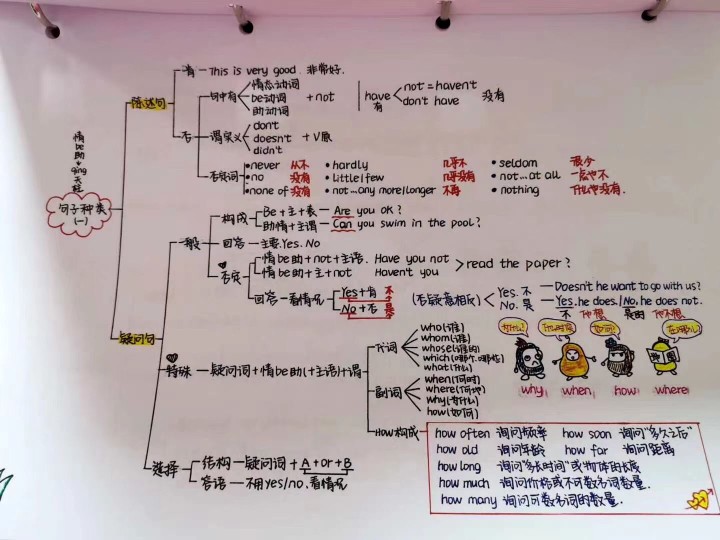 情be助→qing天柱
句子种类(一)
陈述句
肯—This is very good. 非常好.
否
句中有
情态动词
be动词
助动词
+not
have 有
not = haven't
don't have
没有
谓实义
don't
doesn't
didn't
+ V原
否定词
•never 从不 •hardly 几乎不 •seldom 很少
•no 没有 •little/few 几乎没有 •not...at all 一点也不
•none of 没有 •not...any more/longer 不再 •nothing 什么也没有.
疑问句
一般
构成
Be+主+表—Are you ok?
助情+主谓—Can you swim in the pool?
回答—主要Yes. No
否定
情be助+not+主语. Have you not
情be助+主+not Haven't you
read the paper?
回答—看情况
Yes+肯 不
No+否 是
(否疑意相反)
Yes. 不
No. 是
Doesn't he want to go with us?
Yes, he does. / No, he does not.
不 他想 是的 他不想
特殊—疑问词+情be助(+主语)+谓
代词
who(谁)
whom(谁)
whose(谁的)
which(哪个.哪些)
what(什么)
副词
when(何时)
where(何地)
why(为什么)
how(如何)
为什么!
什么时候
如何?
在哪儿?
why when how where
How构成
how often 询问频率 how soon 询问"多久之后"
how old 询问年龄 how far 询问距离
how long 询问"多长时间"或物体的长度
how much 询问价格或不可数名词数量.
how many 询问可数名词的数量.
选择
结构—疑问词+A+or+B
答语—不用yes/no.看情况